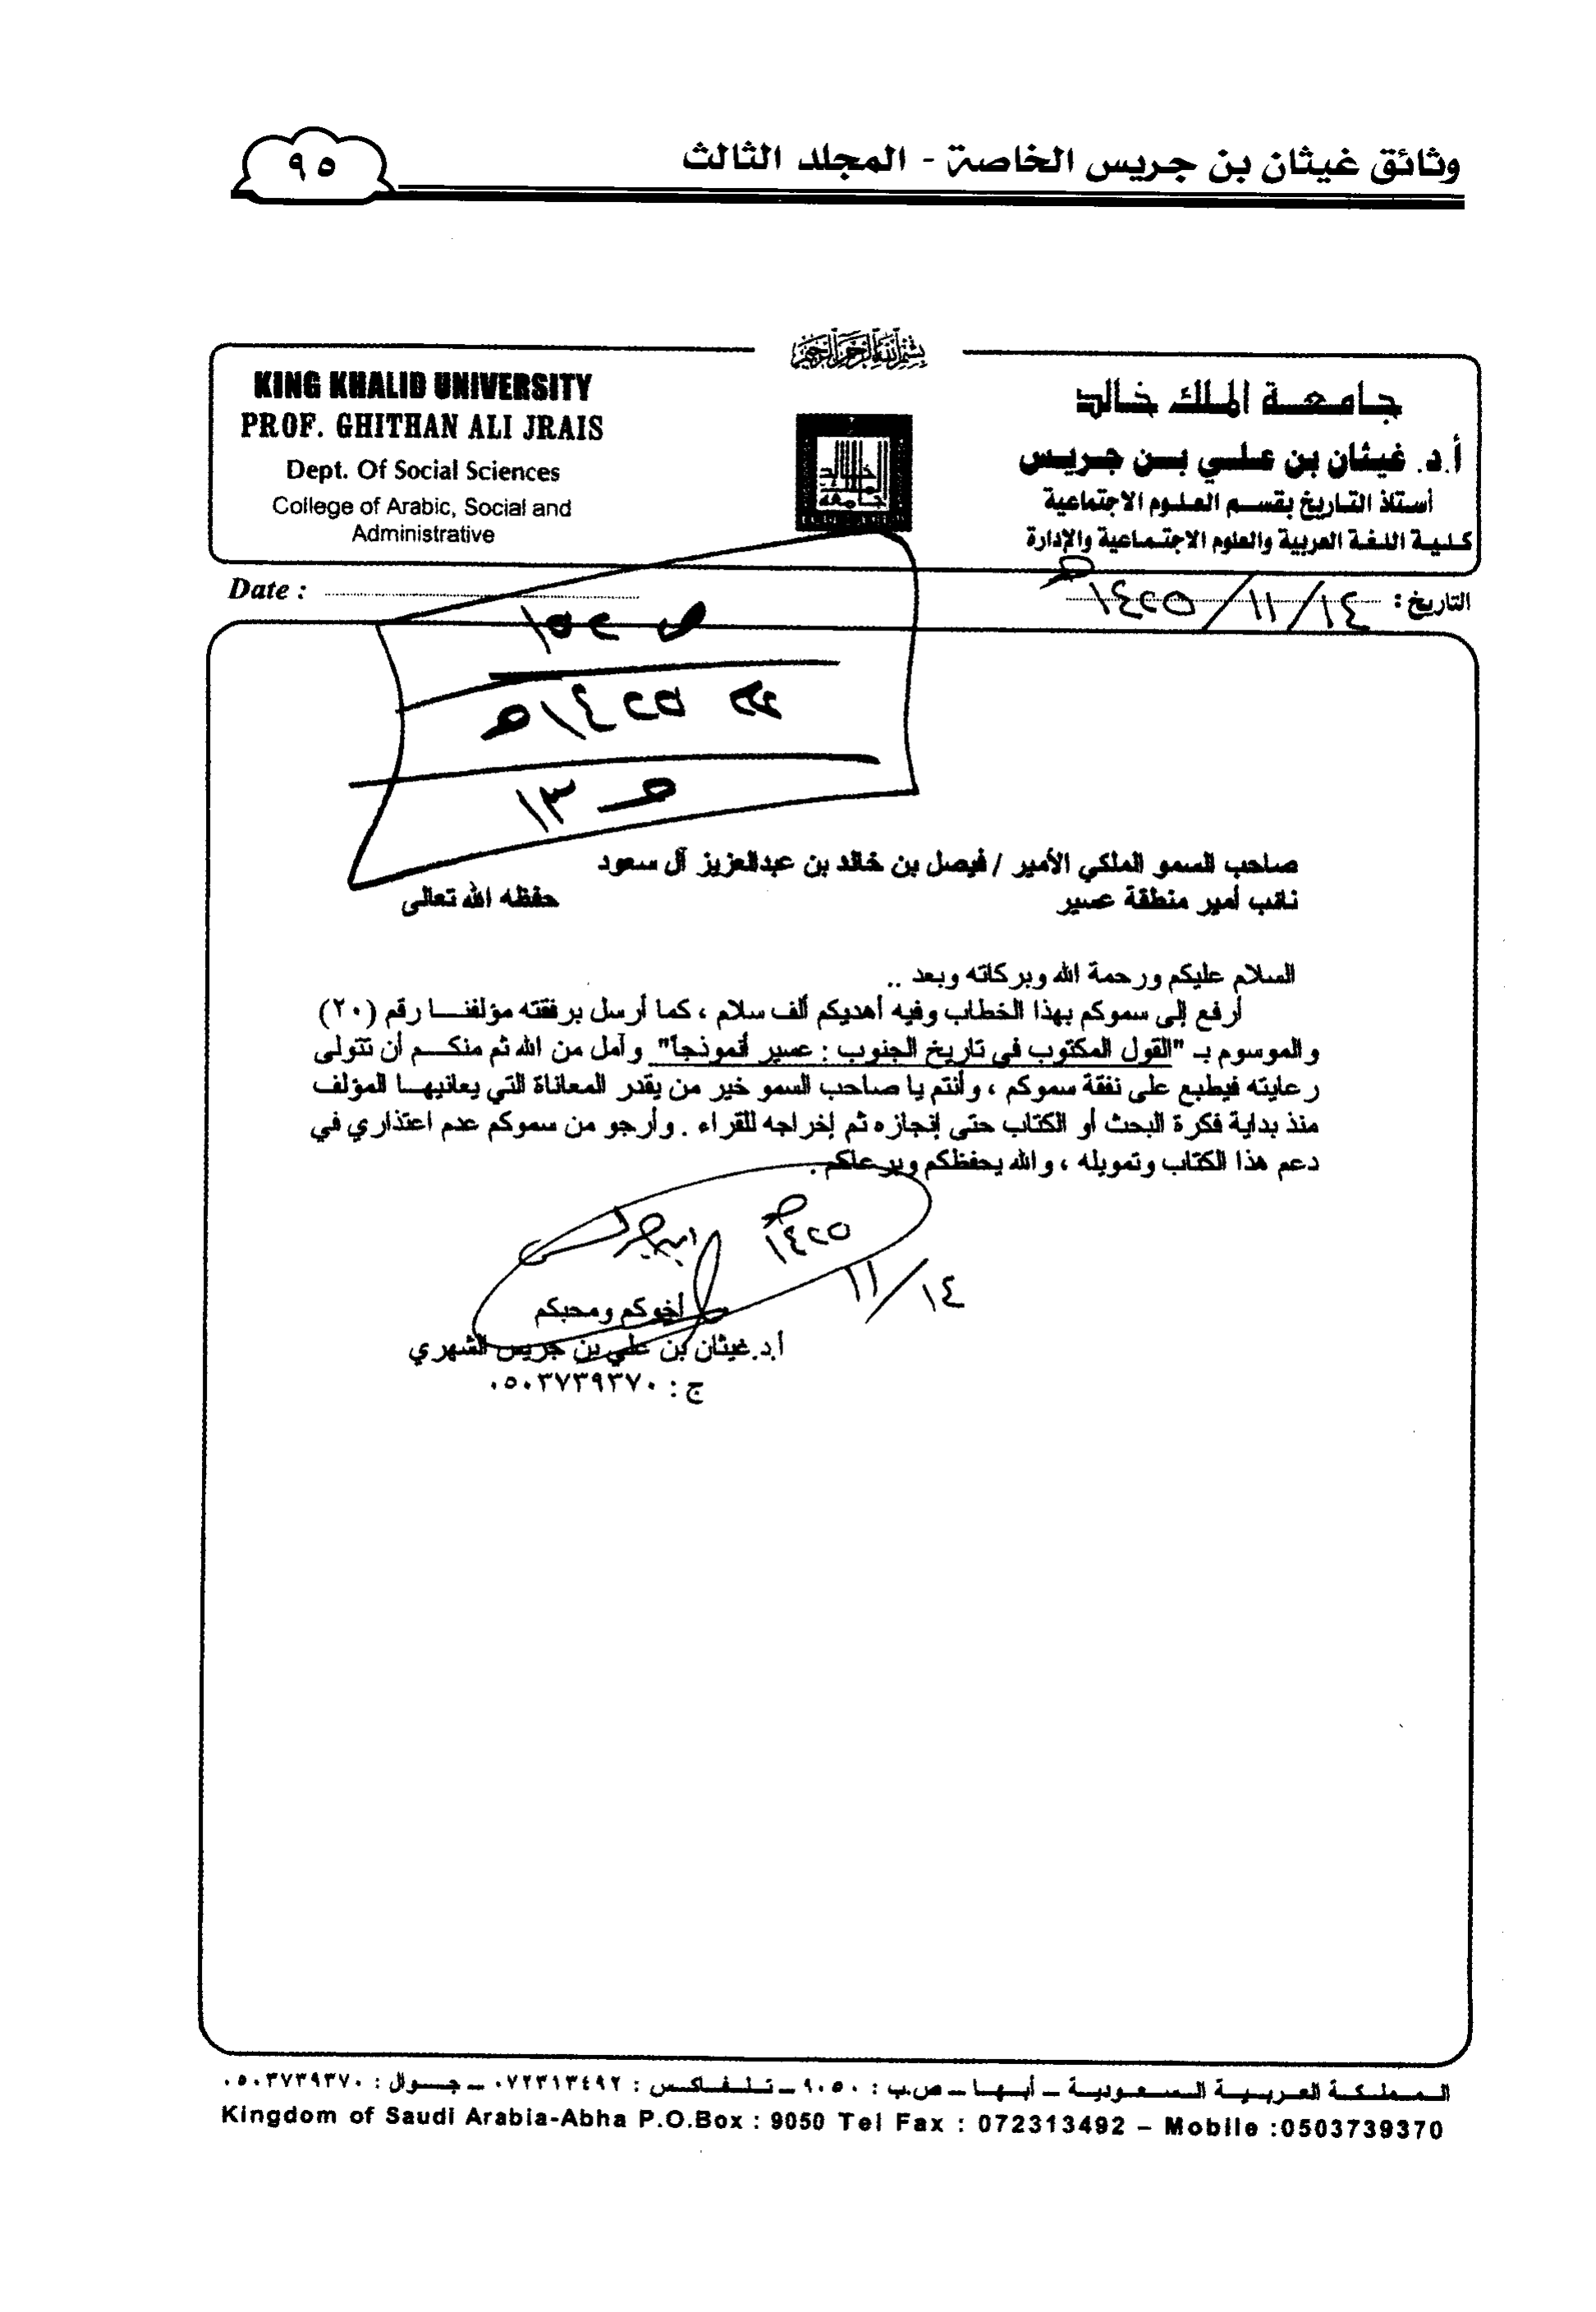 وثائق غيثان بن جريس الخاصة - المجلد الثالث
٩٥
بسم الله الرحمن الرحيم
KING KHALID UNIVERSITY
PROF. GHITHAN ALI JRAIS
Dept. Of Social Sciences
College of Arabic, Social and
Administrative
جامعة الملك خالد
أ.د. غيثان بن علي بن جريس
أستاذ التاريخ بقسم العلوم الاجتماعية
كلية اللغة العربية والعلوم الاجتماعية والإدارة
Date :
التاريخ : ١٤/١١/١٤٢٥هـ
صاحب السمو الملكي الأمير / فيصل بن خالد بن عبدالعزيز آل سعود
نائب أمير منطقة عسير حفظه الله تعالى
السلام عليكم ورحمة الله وبركاته وبعد ..
أرفع إلى سموكم بهذا الخطاب وفيه أهديكم ألف سلام ، كما أرسل برفقته مؤلفنا رقم (٢٠)
والموسوم بـ "القول المكتوب في تاريخ الجنوب : عسير أنموذجاً" وآمل من الله ثم منكم أن تتولى
رعايته فيطبع على نفقة سموكم ، وأنتم يا صاحب السمو خير من يقدر المعاناة التي يعانيها المؤلف
منذ بداية فكرة البحث أو الكتاب حتى إنجازه ثم إخراجه للقراء . وأرجو من سموكم عدم اعتذاري في
دعم هذا الكتاب وتمويله ، والله يحفظكم ويرعاكم .
١٤/١١
١٤٢٥هـ
أخوكم ومحبكم
أ.د.غيثان بن علي بن جريس الشهري
ج : ٠٥٠٣٧٣٩٣٧٠
المملكة العربية السعودية – أبها – ص.ب : ٩٠٥٠ – تلفاكس : ٠٧٢٣١٣٤٩٢ – جوال : ٠٥٠٣٧٣٩٣٧٠
Kingdom of Saudi Arabia-Abha P.O.Box : 9050 Tel Fax : 072313492 – Mobile :0503739370